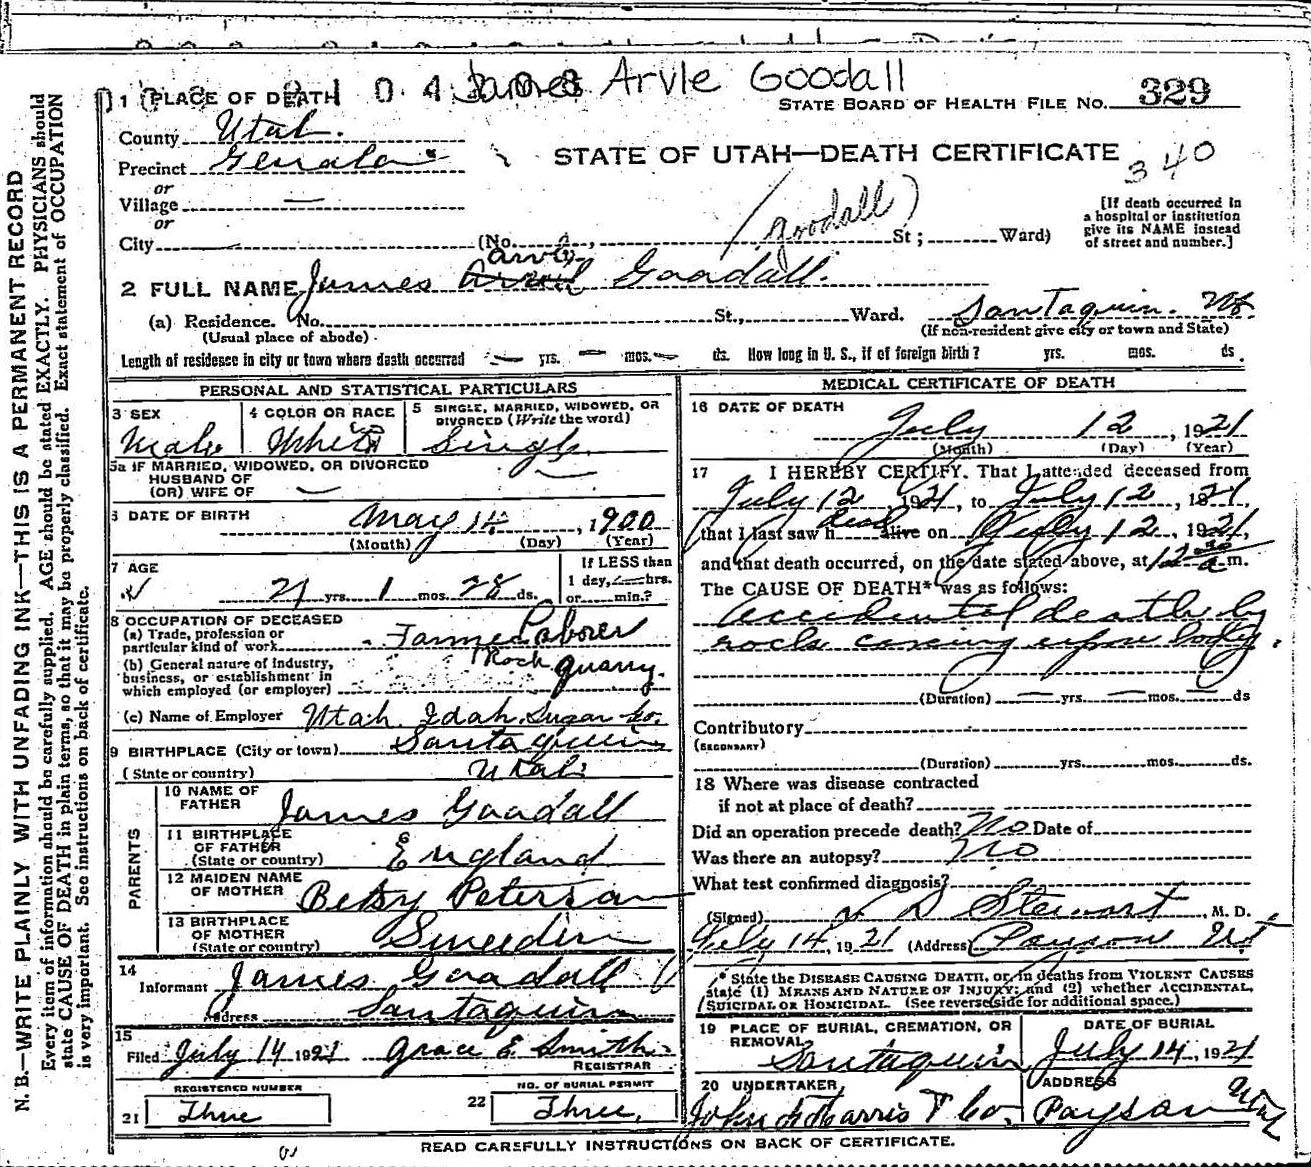 James Arvle Goodall
1 PLACE OF DEATH
STATE BOARD OF HEALTH FILE NO. 329
County Utah.
Precinct Genola
STATE OF UTAH—DEATH CERTIFICATE
340
or
Village —
or
City (No. , St ; Ward)
(Goodall)
[If death occurred in
a hospital or institution
give its NAME instead
of street and number.]
Arvle
2 FULL NAME James Goodall.
(a) Residence. No. St., Ward. Santaquin. Ut.
(Usual place of abode)
(If non-resident give city or town and State)
Length of residence in city or town where death occurred — yrs. — mos. — ds. How long in U. S., if of foreign birth ? yrs. mos. ds.
PERSONAL AND STATISTICAL PARTICULARS
3 SEX
Male
4 COLOR OR RACE
White
5 SINGLE, MARRIED, WIDOWED, OR
DIVORCED (Write the word)
Single
5a IF MARRIED, WIDOWED, OR DIVORCED
HUSBAND OF
(OR) WIFE OF —
6 DATE OF BIRTH May 14, 1900
(Month) (Day) (Year)
7 AGE
21 yrs. 1 mos. 28 ds.
If LESS than
1 day, — hrs.
or min.?
8 OCCUPATION OF DECEASED
(a) Trade, profession or
particular kind of work Farmer Laborer
(b) General nature of industry,
business, or establishment in
which employed (or employer) Rock quarry.
(c) Name of Employer Utah Idah. Sugar Co.
9 BIRTHPLACE (City or town) Santaquin
(State or country) Utah
PARENTS
10 NAME OF
FATHER James Goodall
11 BIRTHPLACE
OF FATHER
(State or country) England
12 MAIDEN NAME
OF MOTHER Betsy Peterson
13 BIRTHPLACE
OF MOTHER
(State or country) Sweeden
14
Informant James Goodall
Address Santaquin
15
Filed July 14 1921 Grace E. Smith
REGISTRAR
REGISTERED NUMBER
21 Three
NO. OF BURIAL PERMIT
22 Three,
MEDICAL CERTIFICATE OF DEATH
16 DATE OF DEATH
July 12, 1921
(Month) (Day) (Year)
17 I HEREBY CERTIFY, That I attended deceased from
July 12 1921, to July 12, 1921,
that I last saw h dead alive on July 12, 1921,
and that death occurred, on the date stated above, at 12 a m.
The CAUSE OF DEATH* was as follows:
accidental death by
rocks caveing upon body.
(Duration) — yrs. — mos. — ds
Contributory
(SECONDARY)
(Duration) yrs. mos. ds.
18 Where was disease contracted
if not at place of death?
Did an operation precede death? No Date of
Was there an autopsy? No
What test confirmed diagnosis?
(Signed) D Stewart, M. D.
July 14, 1921 (Address) Payson Ut
* State the DISEASE CAUSING DEATH, or, in deaths from VIOLENT CAUSES
state (1) MEANS AND NATURE OF INJURY; and (2) whether ACCIDENTAL,
SUICIDAL OR HOMICIDAL. (See reverse side for additional space.)
19 PLACE OF BURIAL, CREMATION, OR
REMOVAL
Santaquin
DATE OF BURIAL
July 14, 1921
20 UNDERTAKER,
John Harris & Co.
ADDRESS
Payson Utah
READ CAREFULLY INSTRUCTIONS ON BACK OF CERTIFICATE.
N. B.—WRITE PLAINLY WITH UNFADING INK—THIS IS A PERMANENT RECORD
Every item of information should be carefully supplied. AGE should be stated EXACTLY. PHYSICIANS should
state CAUSE OF DEATH in plain terms, so that it may be properly classified. Exact statement of OCCUPATION
is very important. See instructions on back of certificate.